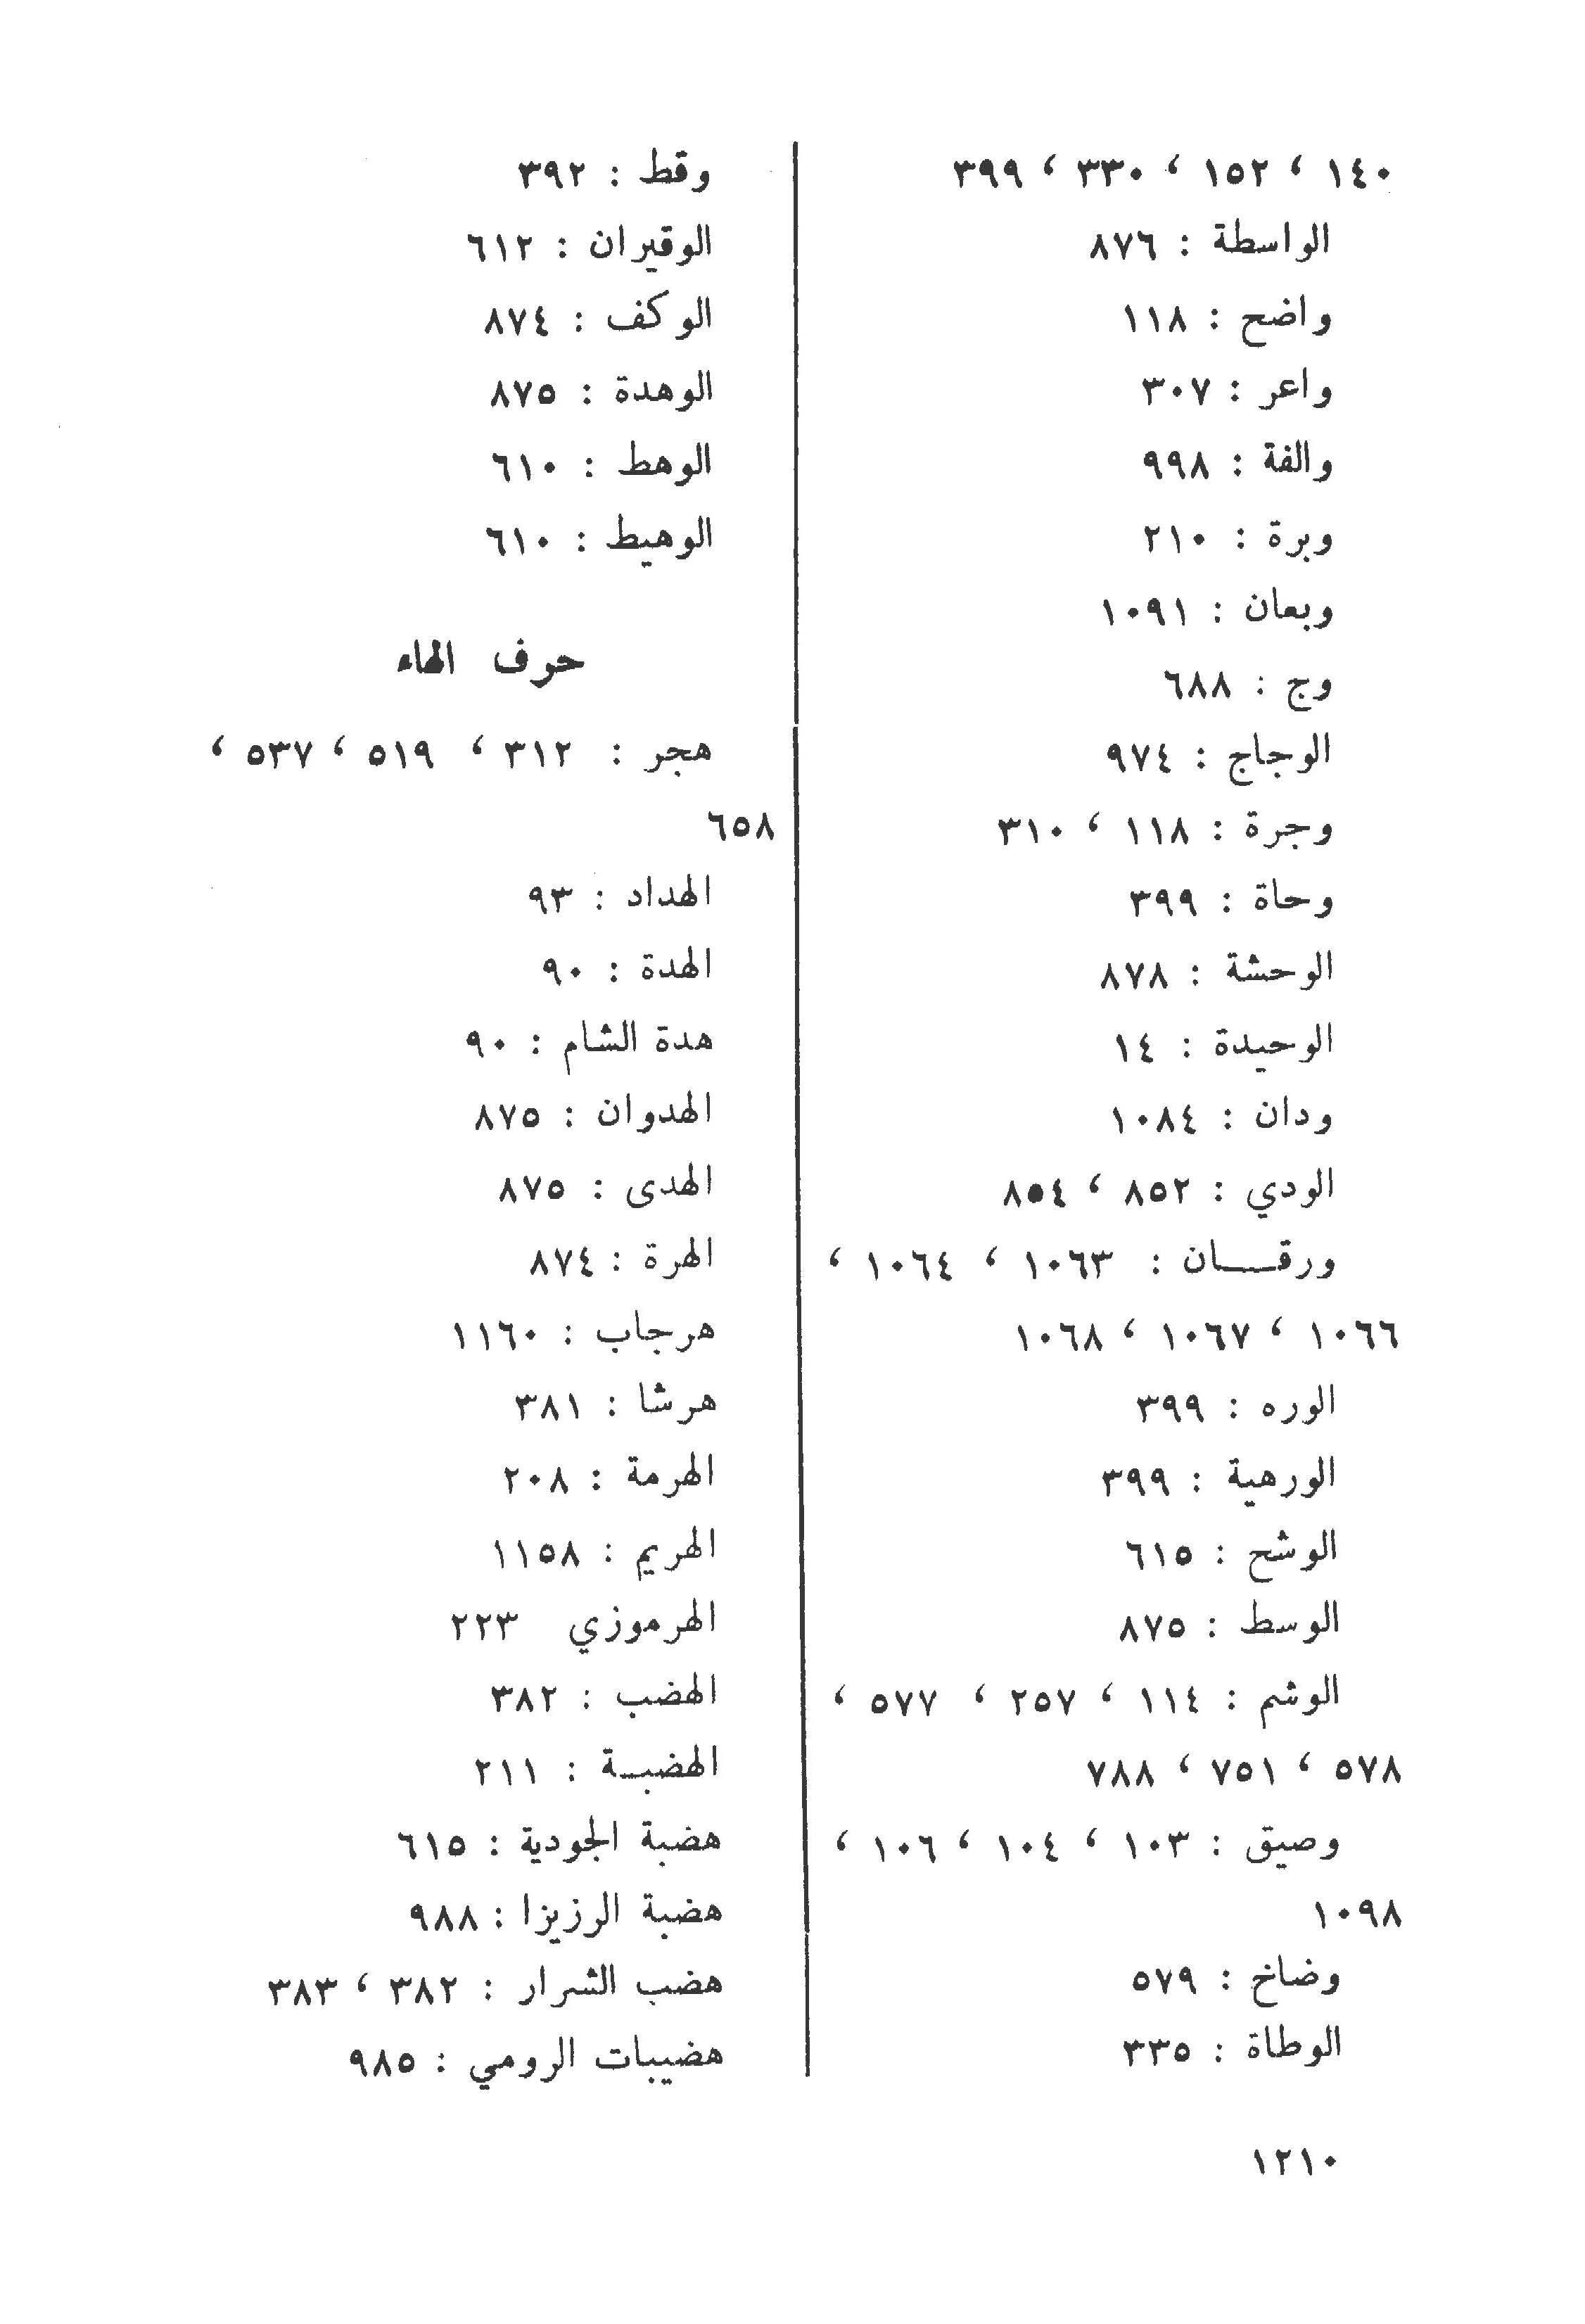 ١٤٠ ، ١٥٢ ، ٣٣٠ ، ٣٩٩
الواسطة : ٨٧٦
واضح : ١١٨
واعر : ٣٠٧
والفة : ٩٩٨
وبرة : ٢١٠
وبعان : ١٠٩١
وج : ٦٨٨
الوجاج : ٩٧٤
وجرة : ١١٨ ، ٣١٠
وحاة : ٣٩٩
الوحشة : ٨٧٨
الوحيدة : ١٤
ودان : ١٠٨٤
الودي : ٨٥٢ ، ٨٥٤
ورقــــان : ١٠٦٣ ، ١٠٦٤ ،
١٠٦٦ ، ١٠٦٧ ، ١٠٦٨
الوره : ٣٩٩
الورهية : ٣٩٩
الوشح : ٦١٥
الوسط : ٨٧٥
الوشم : ١١٤ ، ٢٥٧ ، ٥٧٧ ،
٥٧٨ ، ٧٥١ ، ٧٨٨
وصيق : ١٠٣ ، ١٠٤ ، ١٠٦ ،
١٠٩٨
وضاخ : ٥٧٩
الوطاة : ٣٣٥
وقط : ٣٩٢
الوقيران : ٦١٢
الوكف : ٨٧٤
الوهدة : ٨٧٥
الوهط : ٦١٠
الوهيط : ٦١٠
حرف الهاء
هجر : ٣١٢ ، ٥١٩ ، ٥٣٧ ،
٦٥٨
الهداد : ٩٣
الهدة : ٩٠
هدة الشام : ٩٠
الهدوان : ٨٧٥
الهدى : ٨٧٥
الهرة : ٨٧٤
هرجاب : ١١٦٠
هرشا : ٣٨١
الهرمة : ٢٠٨
الهريم : ١١٥٨
الهرموزي ٢٢٣
الهضب : ٣٨٢
الهضبـة : ٢١١
هضبة الجودية : ٦١٥
هضبة الرزيزا : ٩٨٨
هضب الشرار : ٣٨٢ ، ٣٨٣
هضيبات الرومي : ٩٨٥
١٢١٠